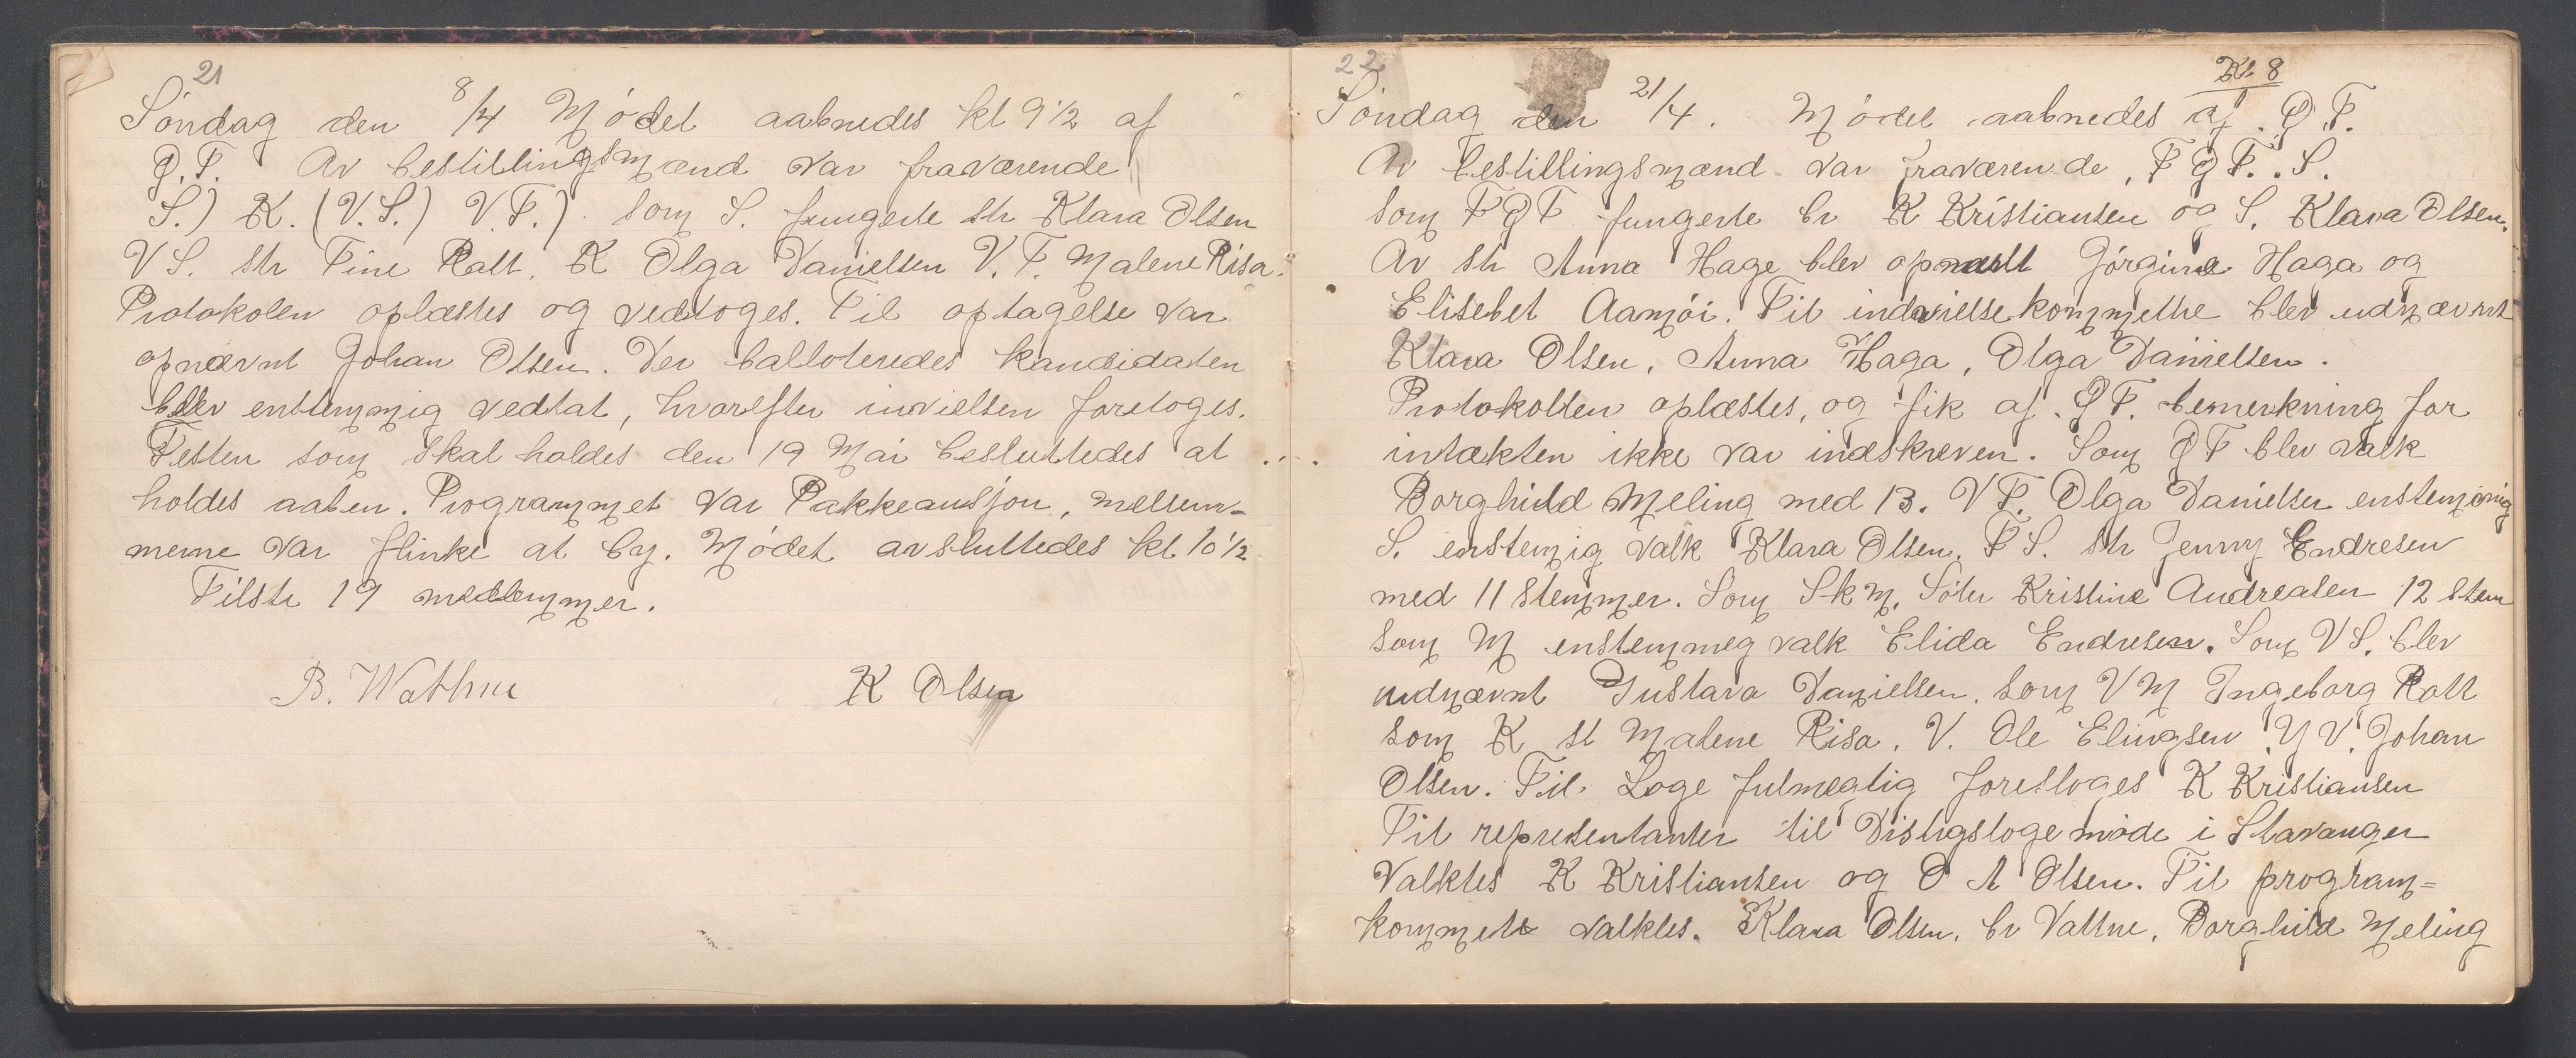 21
Söndag den 8/4 Mödet aabnedes kl 9 1/2 af
Q.T. Av bestillingsmænd var fraværende
S.) K. (V.S.) V.T.) som S. fungerte str Klara Olsen
V S. str Tine Ratt. K Olga Danielsen V.T. Malene Risa.
Protokolen oplæstes og vedtoges. Til optagelse var
opnævnt Johan Olsen. Der balloteredes kandidaten
blev enstemmig vedtat, hvorefter invielsen foretoges.
Festen som skal holdes den 19 Mai besluttedes at
holdes aaben. Programmet var Pakkeausjon, mellem-
merne var flinke at by. Mödet avsluttedes kl 10 1/2
Tilste 19 medlemmer.
B. Wathne K Olsen
22
Kl. 8
Söndag den 21/4. Mödet aabnedes af Q T.
Av bestillingsmænd var fraværende, F Q T. . S.
som F Q T fungerte br K Kristiansen og S. Klara Olsen.
Av str Anna Hage blev opnævt Görgine Haga og
Elisebet Aamöi. Til indvielsekommethe blev udnævnt
Klara Olsen, Anna Haga, Olga Danielsen.
Protokollen oplæstes, og fik af Q T. bemerkning for
intækten ikke var indskreven. Som Q T blev valk
Borghild Meling med 13. V T. Olga Danielsen enstemmig
S. enstemig valk Klara Olsen. F S. str Jenny Endresen
med 11 stemmer. Som Sk M. Söter Kristine Andreasen 12 stem
som M enstemmeg valk Elida Endresen. Som V S. blev
udnævnt Gustava Danielsen. som V M Ingeborg Ratt
som K st Malene Risa. V. Ole Elingsen Y V. Johan
Olsen. Til Loge fulmegtig foresloges K Kristiansen
Til represententer til Distrigsloge möde i Stavanger
Valktes K Kristiansen og O A Olsen. Til program=
kommete valktes. Klara Olsen, br Vattne, Borghild Meling